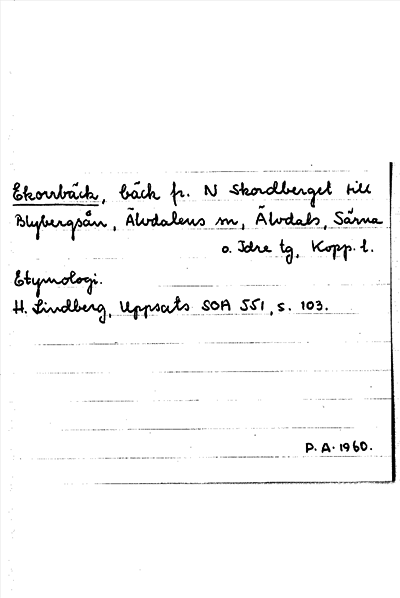 Ekorrbäck, bäck fr. N Skordberget till
Blybergsån, Älvdalens sn, Älvdals, Särna
o. Idre tg, Kopp. l.
Etymologi.
H. Lindberg, Uppsats SOA 551, s. 103.
P. A. 1960.